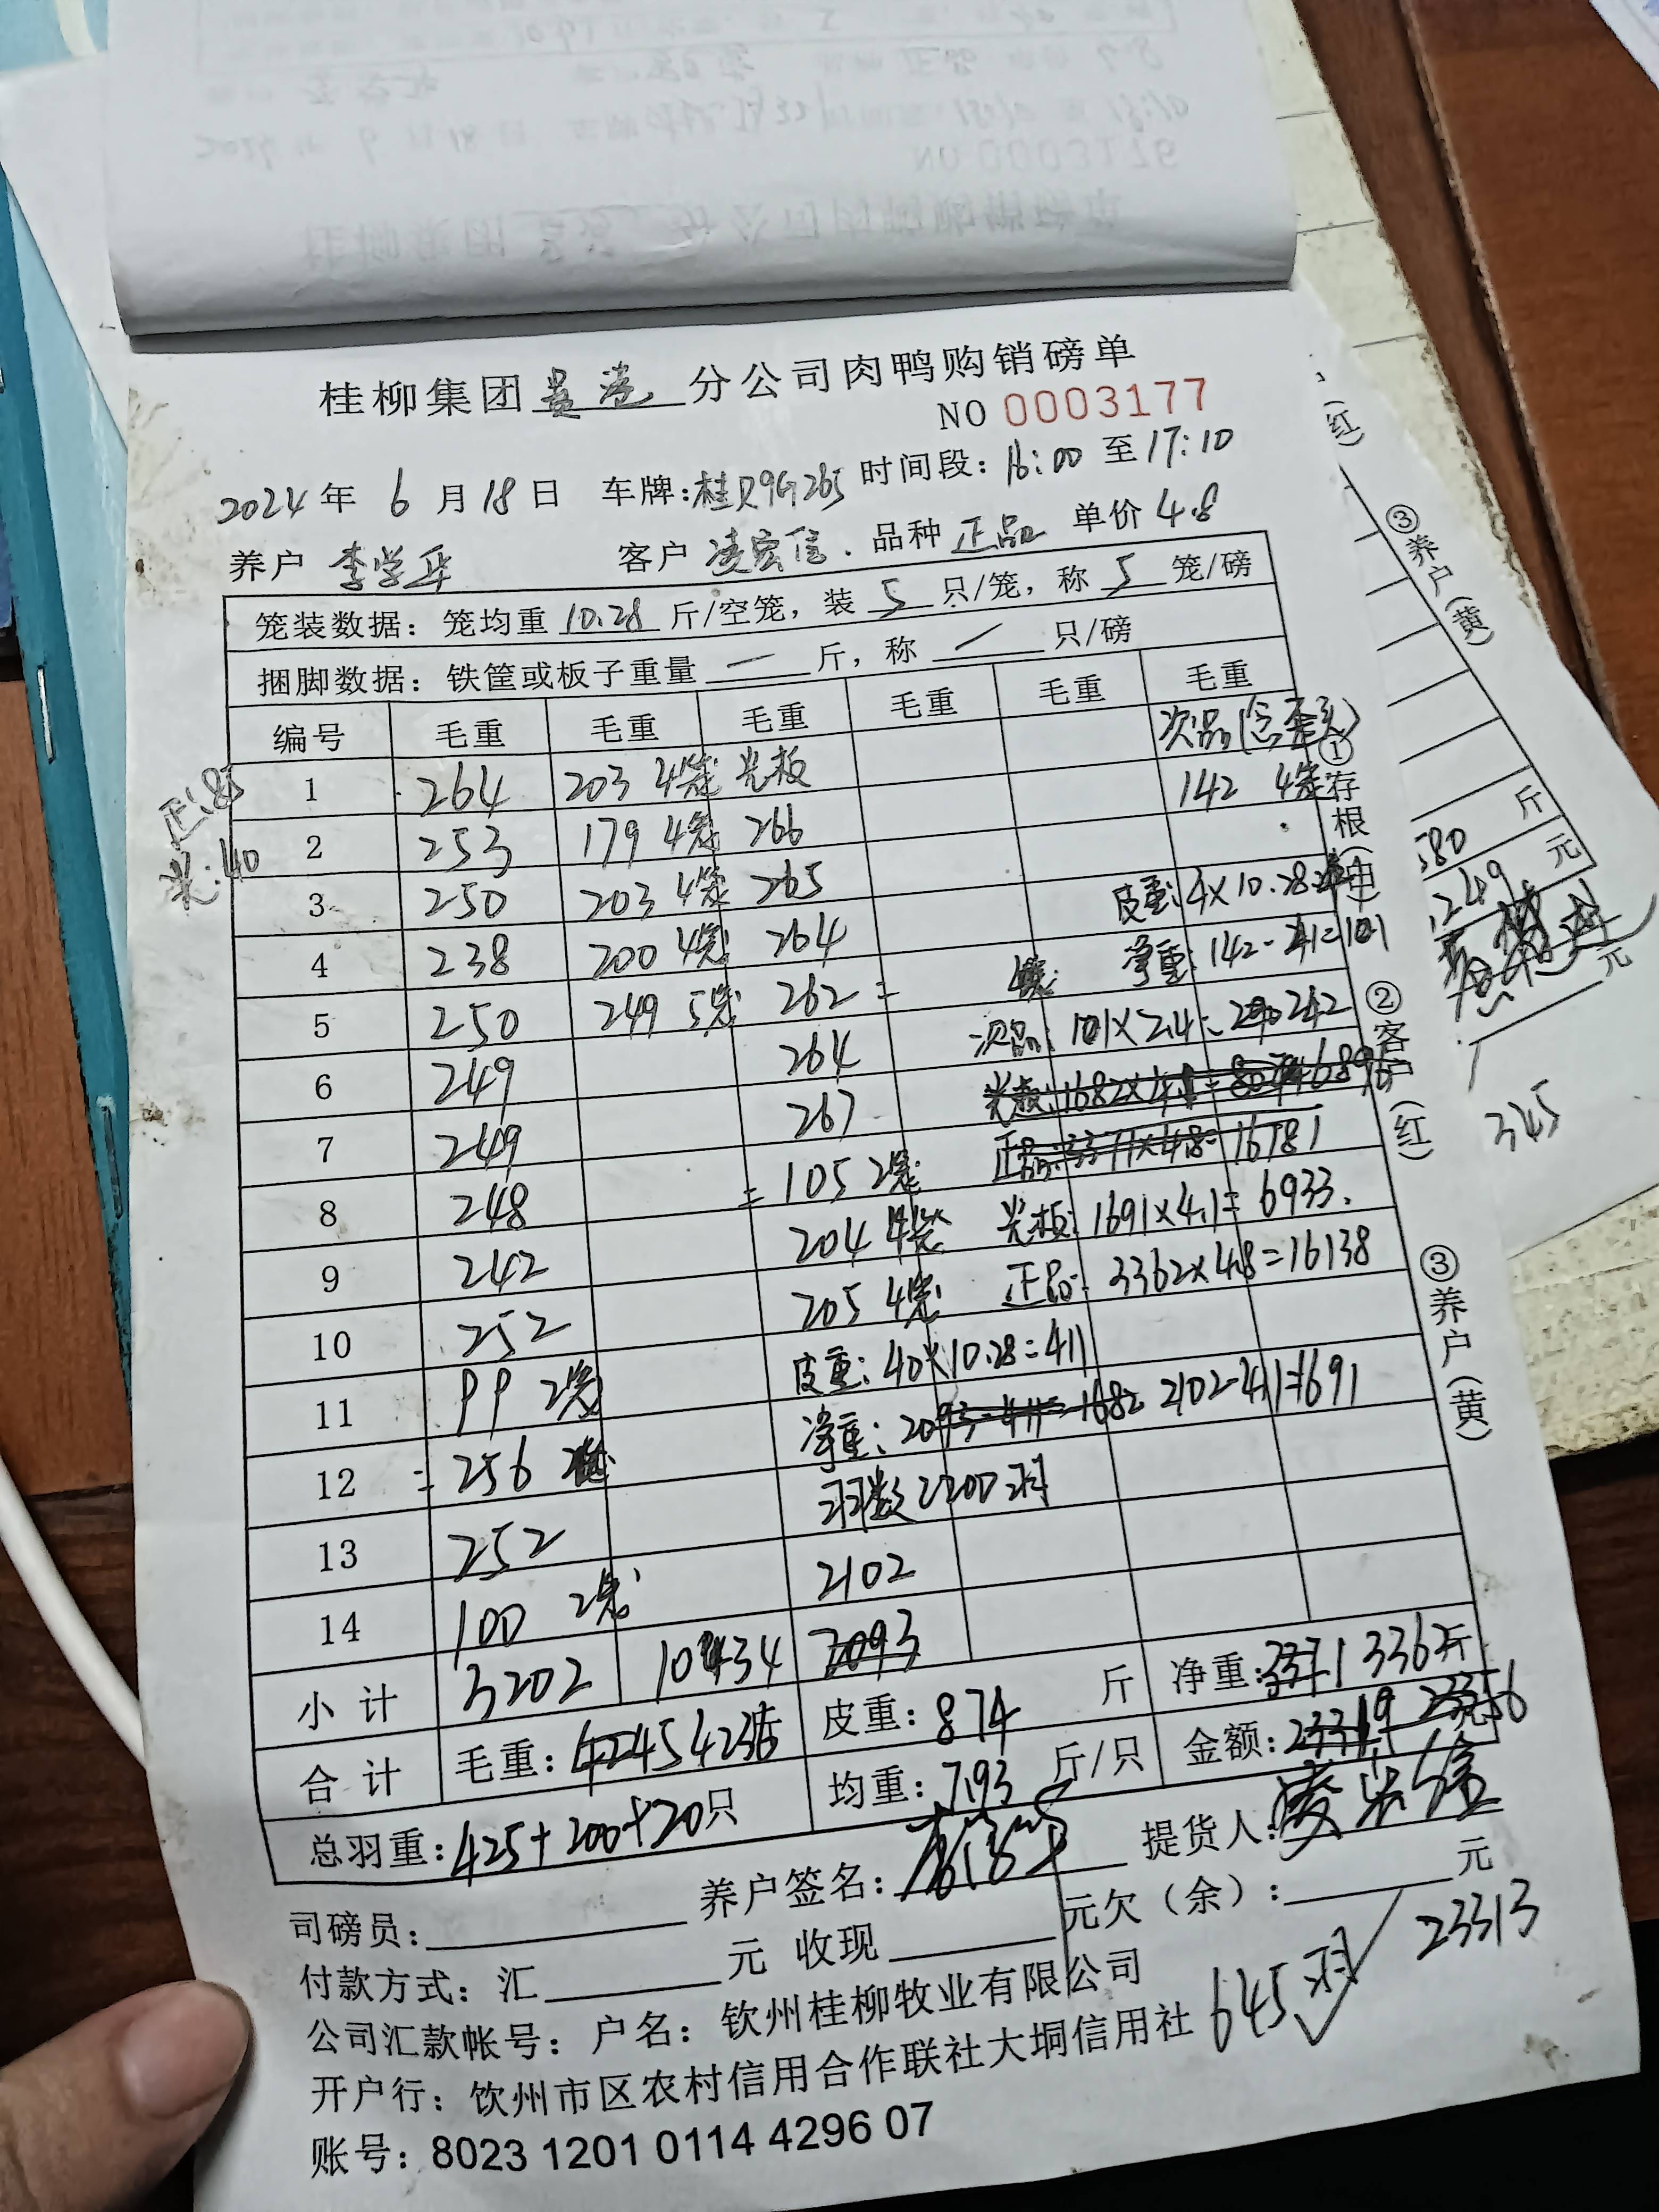 桂柳集团 贵港 分公司肉鸭购销磅单
NO 0003177
2024年 6 月 18 日 车牌:桂R9G265 时间段:16:00 至 17:10
养户 李学平 客户 凌宏信 品种 正品 单价 4.8
笼装数据:笼均重 10.28 斤/空笼,装 5 只/笼,称 5 笼/磅
捆脚数据:铁筐或板子重量 — 斤,称 / 只/磅
编号 毛重 毛重 毛重 毛重 毛重 毛重
次品
正:85
光:40
1 264 203 4笼 光板 142 4笼
2 253 179 4笼 266
3 250 203 4笼 265 皮重:4×10.28
4 238 200 4笼 264 净重:142-41=101
5 250 249 5笼 262 次品:101×2.4= 242
6 249 264 光板:1682×4.1= 6896
7 249 267 正品:3371×4.8= 16181
8 248 =105 2笼 光板:1691×4.1=6933.
9 242 204 4笼 正品:3362×4.8=16138
10 252 205 4笼
11 99 2笼 皮重:40×10.28=411
12 256 净重:2093-411=1682 2102-411=1691
13 252 羽数:200羽
14 100 2笼 2102
小计 3202 1034 2093
合计 毛重:4245 4236 皮重:874 斤 净重:3371 3362斤
总羽重:425+200+20只 均重:7.93 斤/只 金额:23319
司磅员: 养户签名: 提货人:凌宏信
付款方式:汇 元 收现 元欠(余): 元
公司汇款帐号:户名:钦州桂柳牧业有限公司
开户行:饮州市区农村信用合作联社大垌信用社
账号:8023 1201 0114 4296 07
645羽
23313
①存根
②客户(红)
③养户(黄)
(红)
③养户(黄)
斤
元
元
345